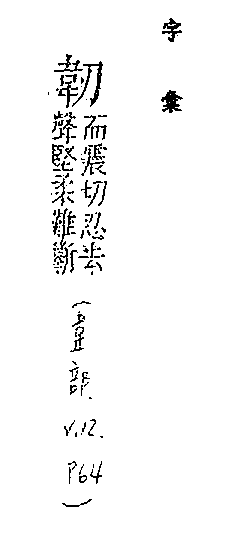 字彙
韌
而震切忍去
聲堅柔難斷
(韋部.
V.12.
P64)